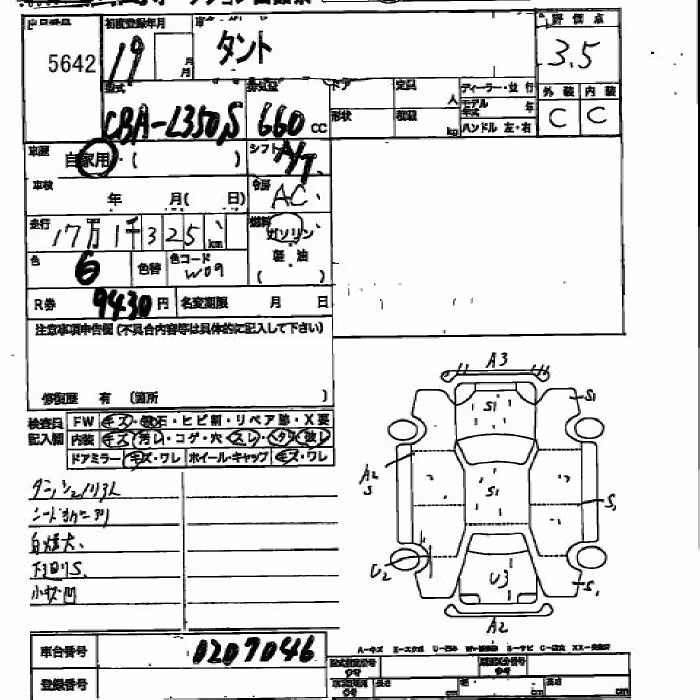 出品番号 初度登録年月 評価点
5642 19 月 月 タント 3.5
型式 排気量 ドア 定員 人 ディーラー・並行 外装 内装
CBA-L350S 660 CC 形状 積載 kg モデル年式 年 C C
ハンドル 左・右
車歴 自家用・( ) シフト A/T
車検 年 月( 日) 冷房 AC
走行 17万1千325 km 燃料 ガソリン・軽油
( )
色 6 色替 色コード W09
R券 9430円 名変期限 月 日
注意事項申告欄(不具合内容等は具体的に記入して下さい)
修復歴 有 (箇所 )
検査員記入欄 FW キズ・飛石・ヒビ割・リペア跡・X要
内装 キズ・汚レ・コゲ・穴・スレ・ハガレ
ドアミラー キズ・ワレ ホイール・キャップ キズ・ワレ
下廻りS
小キズ凹
A3
S1 S1
A2 S S1 S1
U2 U3 S1
A2
車台番号 0207046
登録番号
A-キズ
長さ cm 幅 cm 高さ cm